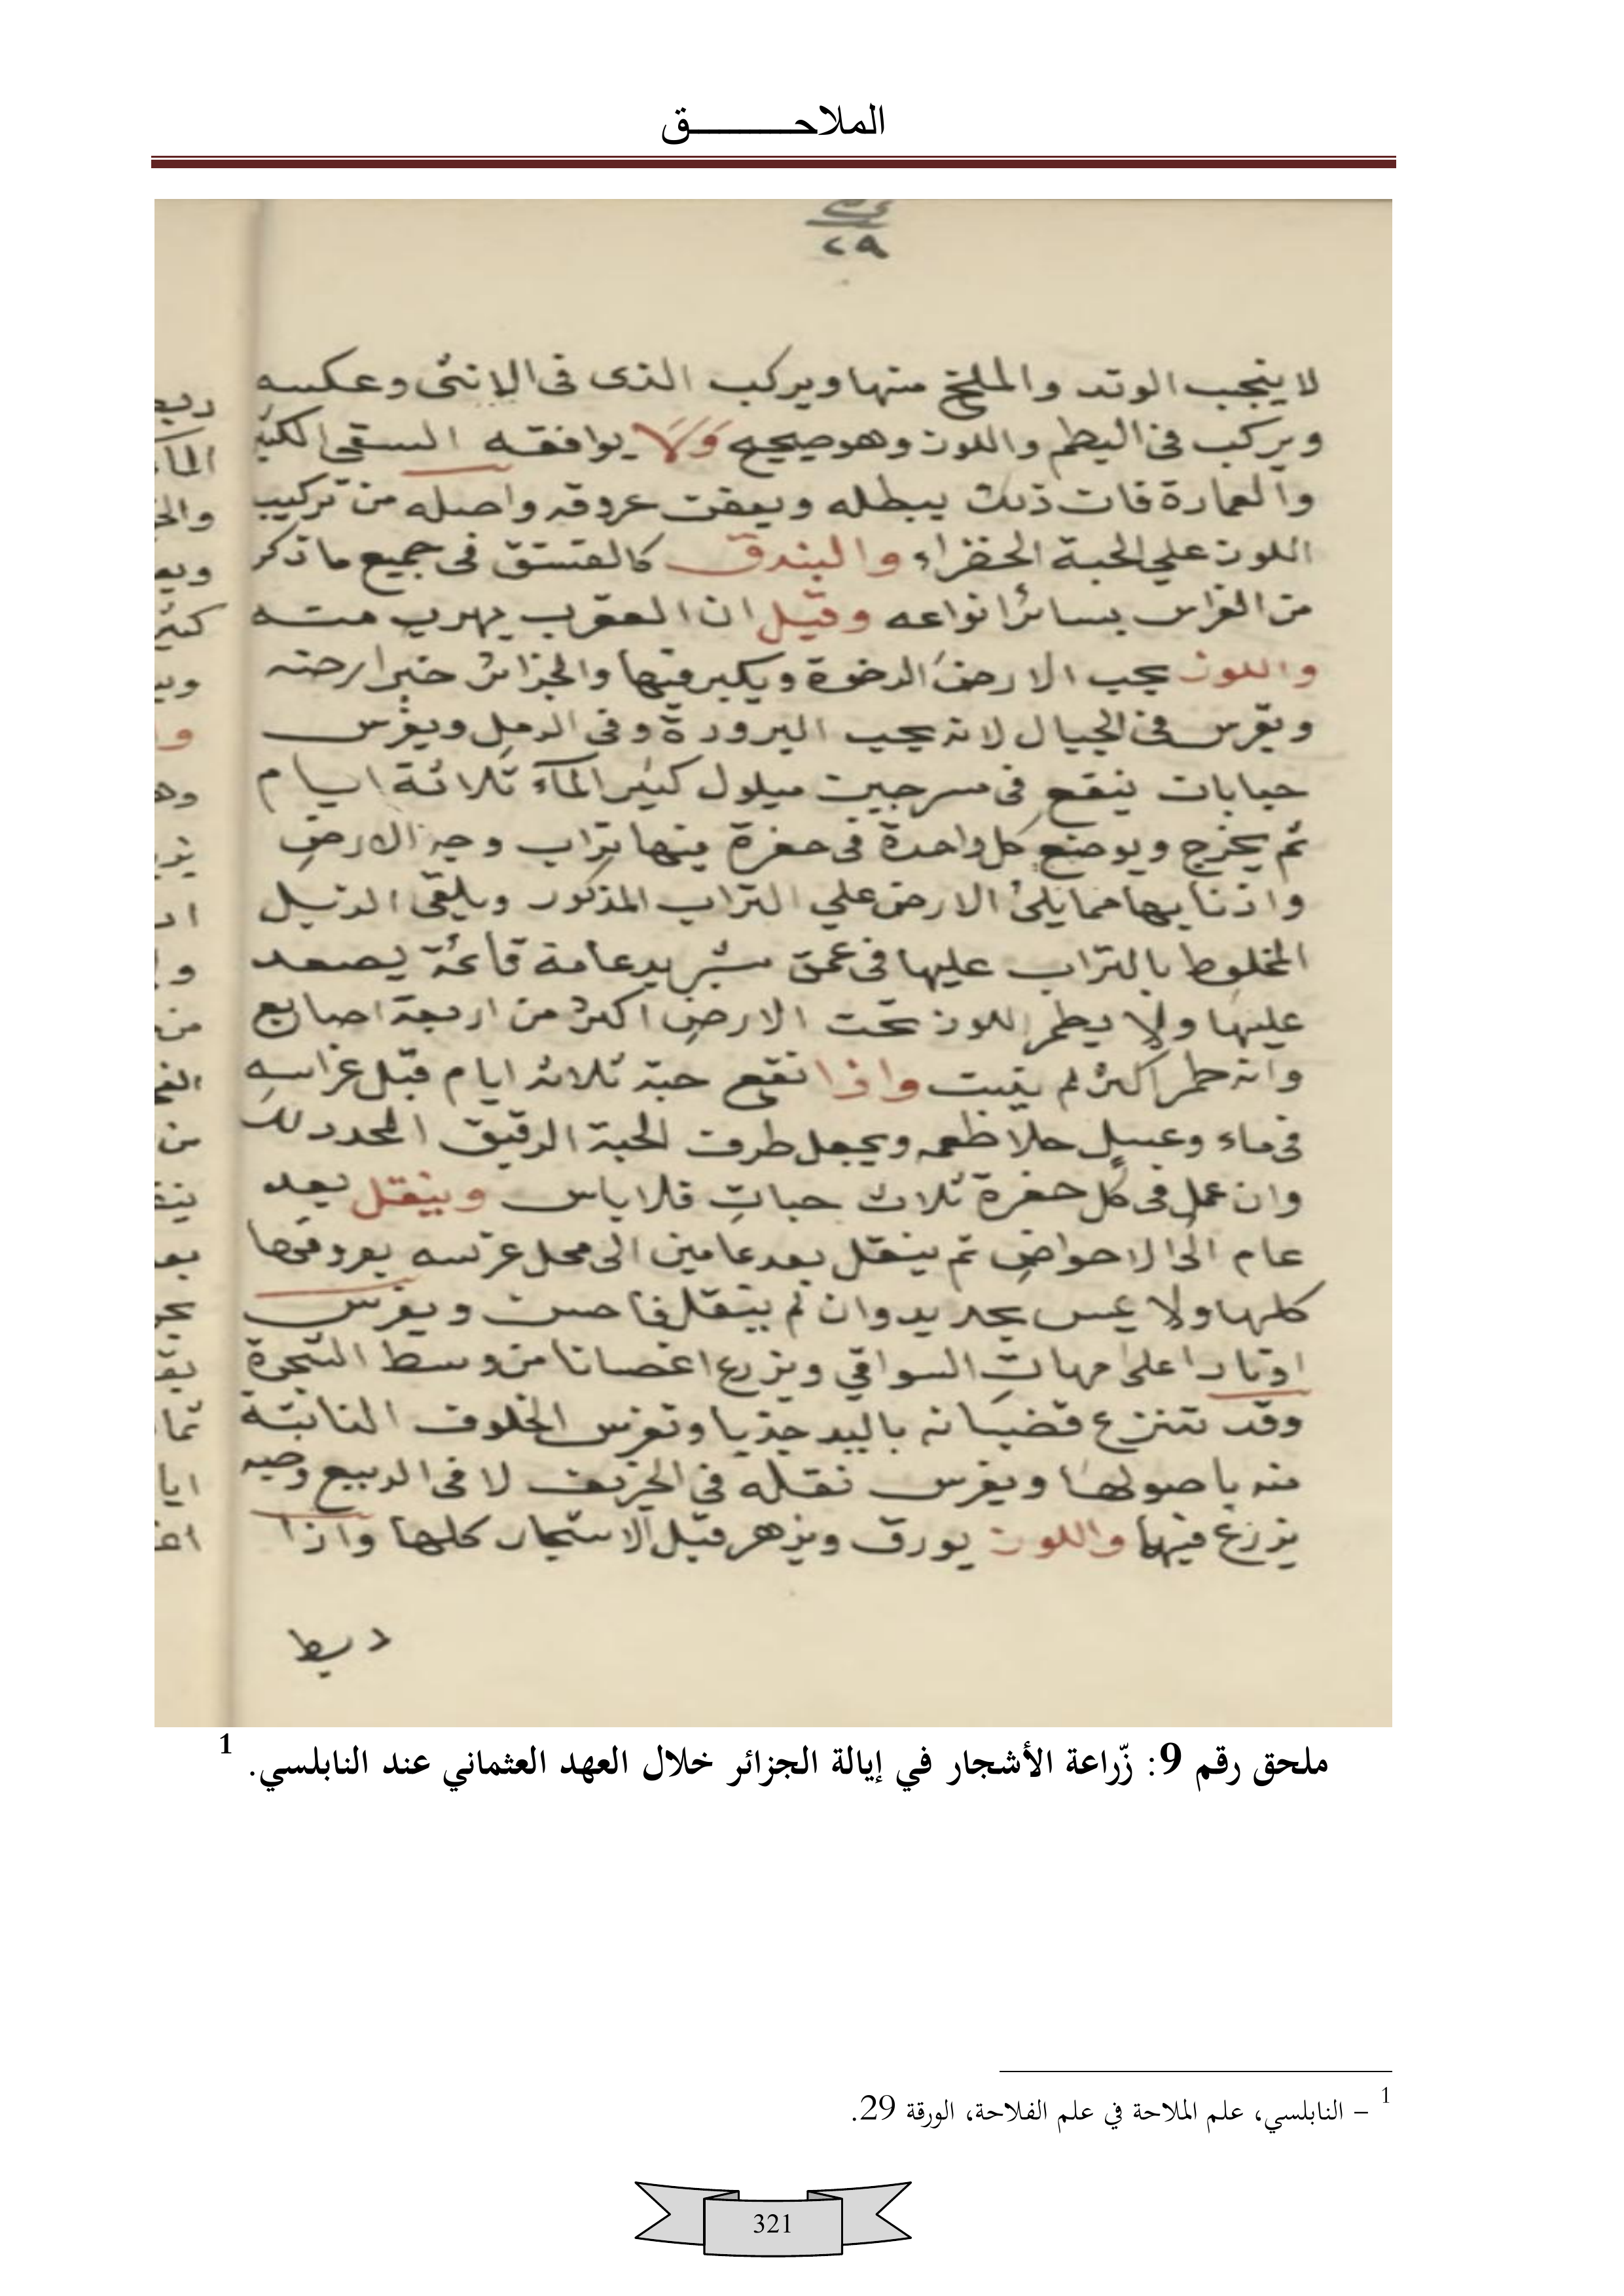 الملاحــــــــــق
٢٩
لا ينجب الوتد والملخ منها ويركب الذى فى الانثى وعكسه
ويركب فى البطم واللوز وهو صحيح ولا يوافقه السقى الكثير
والعمارة فان ذلك يبطله ويعفن عروقه واصله من تركيب
اللوز علي الحبة الخضراء والبندق كالفستق فى جميع ما ذكر
من الغراس بسائر انواعه وقيل ان العقرب يهرب منه
واللوز يحب الارض الرخوة ويكبر فيها والجزائر خير ارضه
ويغرس فى الجبال لانه يحب البرودة وفى الرمل ويغرس
حبابات ينقع فى سرجين مبلول كثير المآء ثلاثة ايام
ثم يخرج ويوضع كل واحدة فى حفرة فيها تراب وجه الارض
مما يلى الارض علي التراب المذكور ويلقى الزبل
المخلوط بالتراب عليها فى عمق شبر بدعامة قائمة يصعد
عليها ولا يطمر اللوز تحت الارض اكثر من اربعة اصابع
وانه طمر اكثر لم ينبت واذا نقع حبه ثلاثه ايام قبل غراسه
فى ماء وعسل حلا طعمه ويجعل طرف الحبة الرقيق المحدد
وان عمل فى كل حفرة ثلاث حبات فلا باس وينقل بعد
عام الى الاحواض ثم ينقل بعد عامين الى محل غرسه بعروقها
كلها ولا يمس بحديد وان لم ينقل فاحسن ويغرس
اوتادا على امهات السواقي ويزرع اغصانا من وسط الشجرة
وقد تنزع قضبانه باليد جذبا وتغرس الخلوف النابتة
منه باصولها ويغرس نقله فى الخريف لا فى الربيع وحبه
يزرع فيها واللوز يورق ويزهر قبل الاشجار كلها واذا
ربط
ملحق رقم 9: زّراعة الأشجار في إيالة الجزائر خلال العهد العثماني عند النابلسي. 1
1 – النابلسي، علم الملاحة في علم الفلاحة، الورقة 29.
321